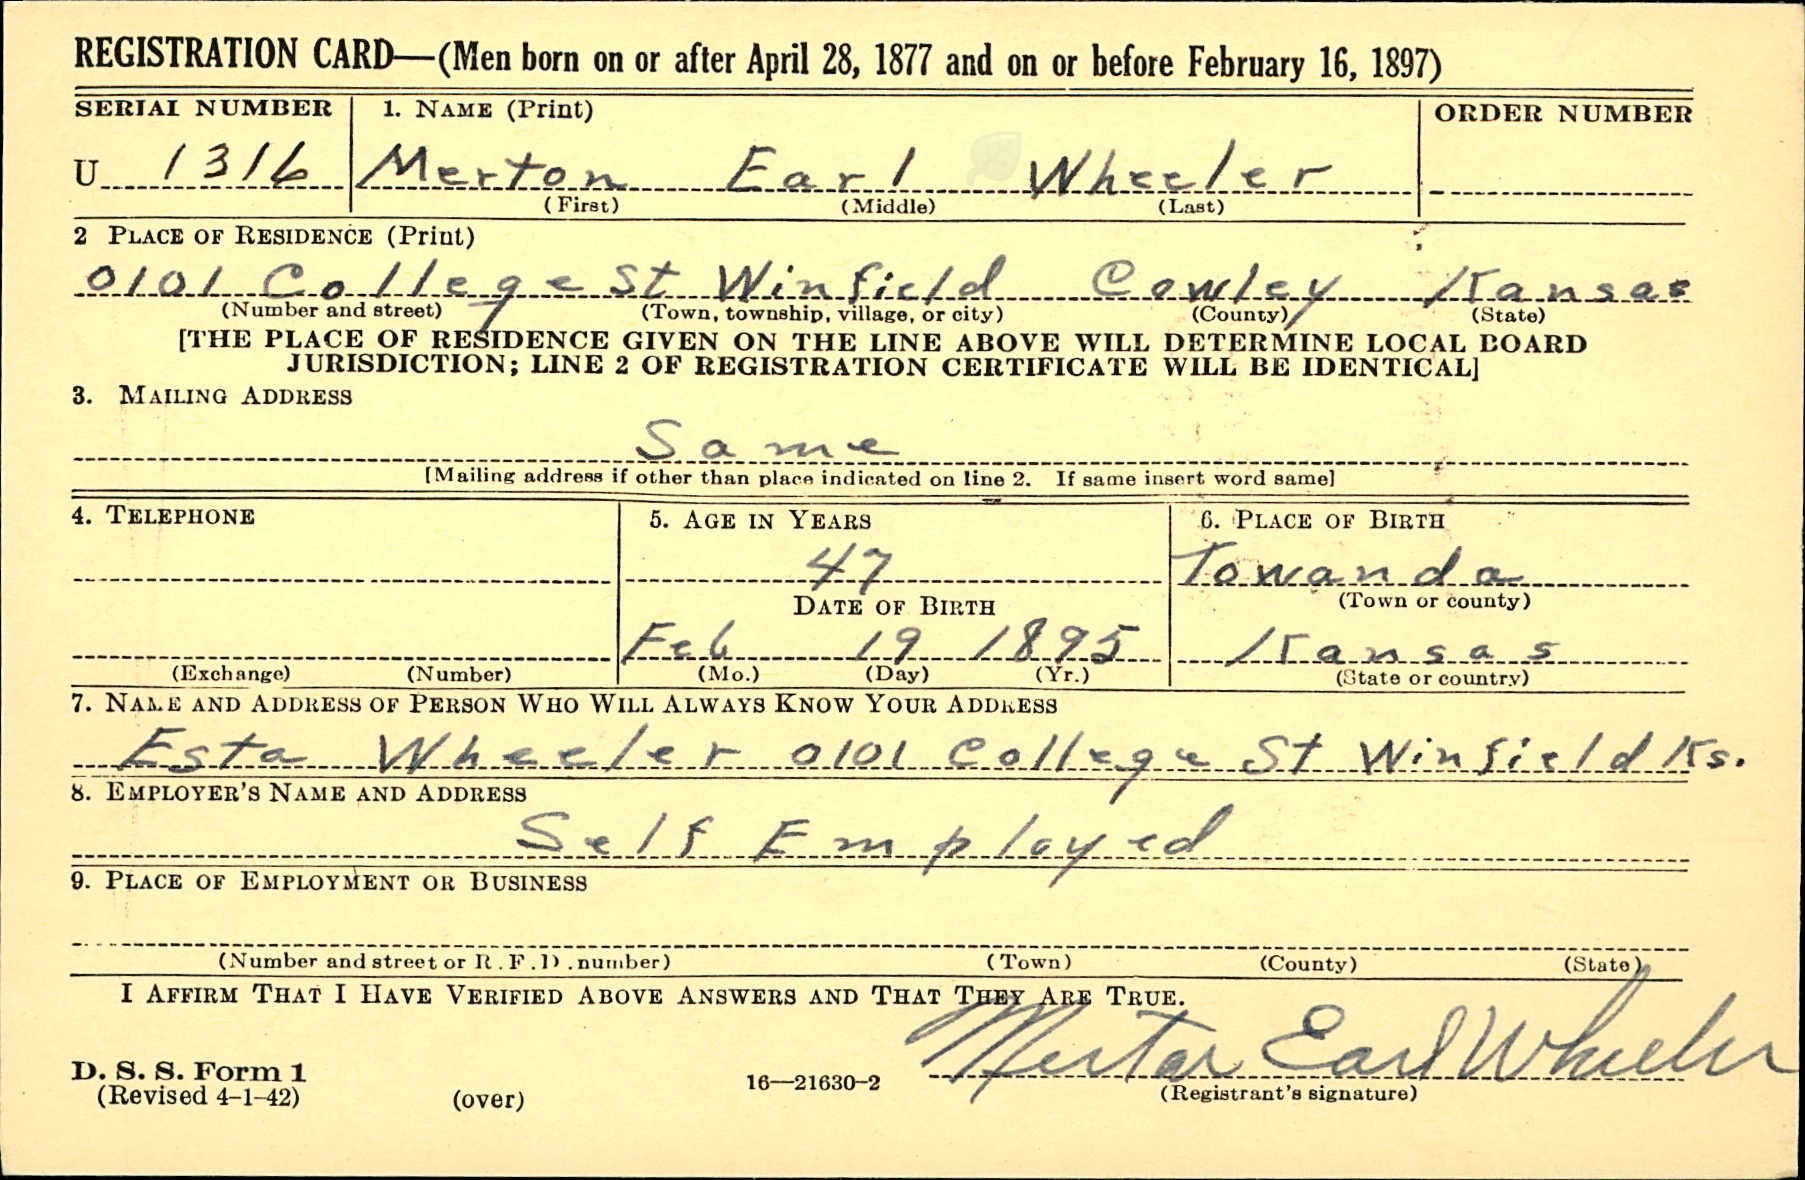 REGISTRATION CARD—(Men born on or after April 28, 1877 and on or before February 16, 1897)
SERIAL NUMBER 1. NAME (Print) ORDER NUMBER
U 1316 Merton Earl Wheeler
(First) (Middle) (Last)
2 PLACE OF RESIDENCE (Print)
0101 College St Winfield Cowley Kansas
(Number and street) (Town, township, village, or city) (County) (State)
[THE PLACE OF RESIDENCE GIVEN ON THE LINE ABOVE WILL DETERMINE LOCAL BOARD
JURISDICTION; LINE 2 OF REGISTRATION CERTIFICATE WILL BE IDENTICAL]
3. MAILING ADDRESS
Same
[Mailing address if other than place indicated on line 2. If same insert word same]
4. TELEPHONE 5. AGE IN YEARS 6. PLACE OF BIRTH
47 Towanda
DATE OF BIRTH (Town or county)
Feb 19 1895 Kansas
(Exchange) (Number) (Mo.) (Day) (Yr.) (State or country)
7. NAME AND ADDRESS OF PERSON WHO WILL ALWAYS KNOW YOUR ADDRESS
Esta Wheeler 0101 College St Winfield Ks.
8. EMPLOYER'S NAME AND ADDRESS
Self Employed
9. PLACE OF EMPLOYMENT OR BUSINESS
(Number and street or R.F.D. number) (Town) (County) (State)
I AFFIRM THAT I HAVE VERIFIED ABOVE ANSWERS AND THAT THEY ARE TRUE.
Merton Earl Wheeler
D. S. S. Form 1
(Revised 4-1-42) (over) 16—21630-2 (Registrant's signature)